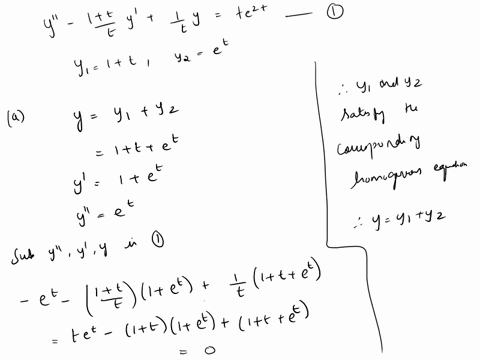 y'' - (1+t)/t y' + 1/t y = te^{2t} — ①
y₁ = 1+t, y₂ = e^t
(a) y = y₁ + y₂
= 1+t+e^t
y' = 1 + e^t
y'' = e^t
Sub y'', y', y in ①
- e^t - ((1+t)/t)(1+e^t) + 1/t (1+t+e^t)
= te^t - (1+t)(1+e^t) + (1+t+e^t)
= 0
∴ y₁ and y₂
satisfy the
corresponding
homogenous equation
∴ y = y₁ + y₂